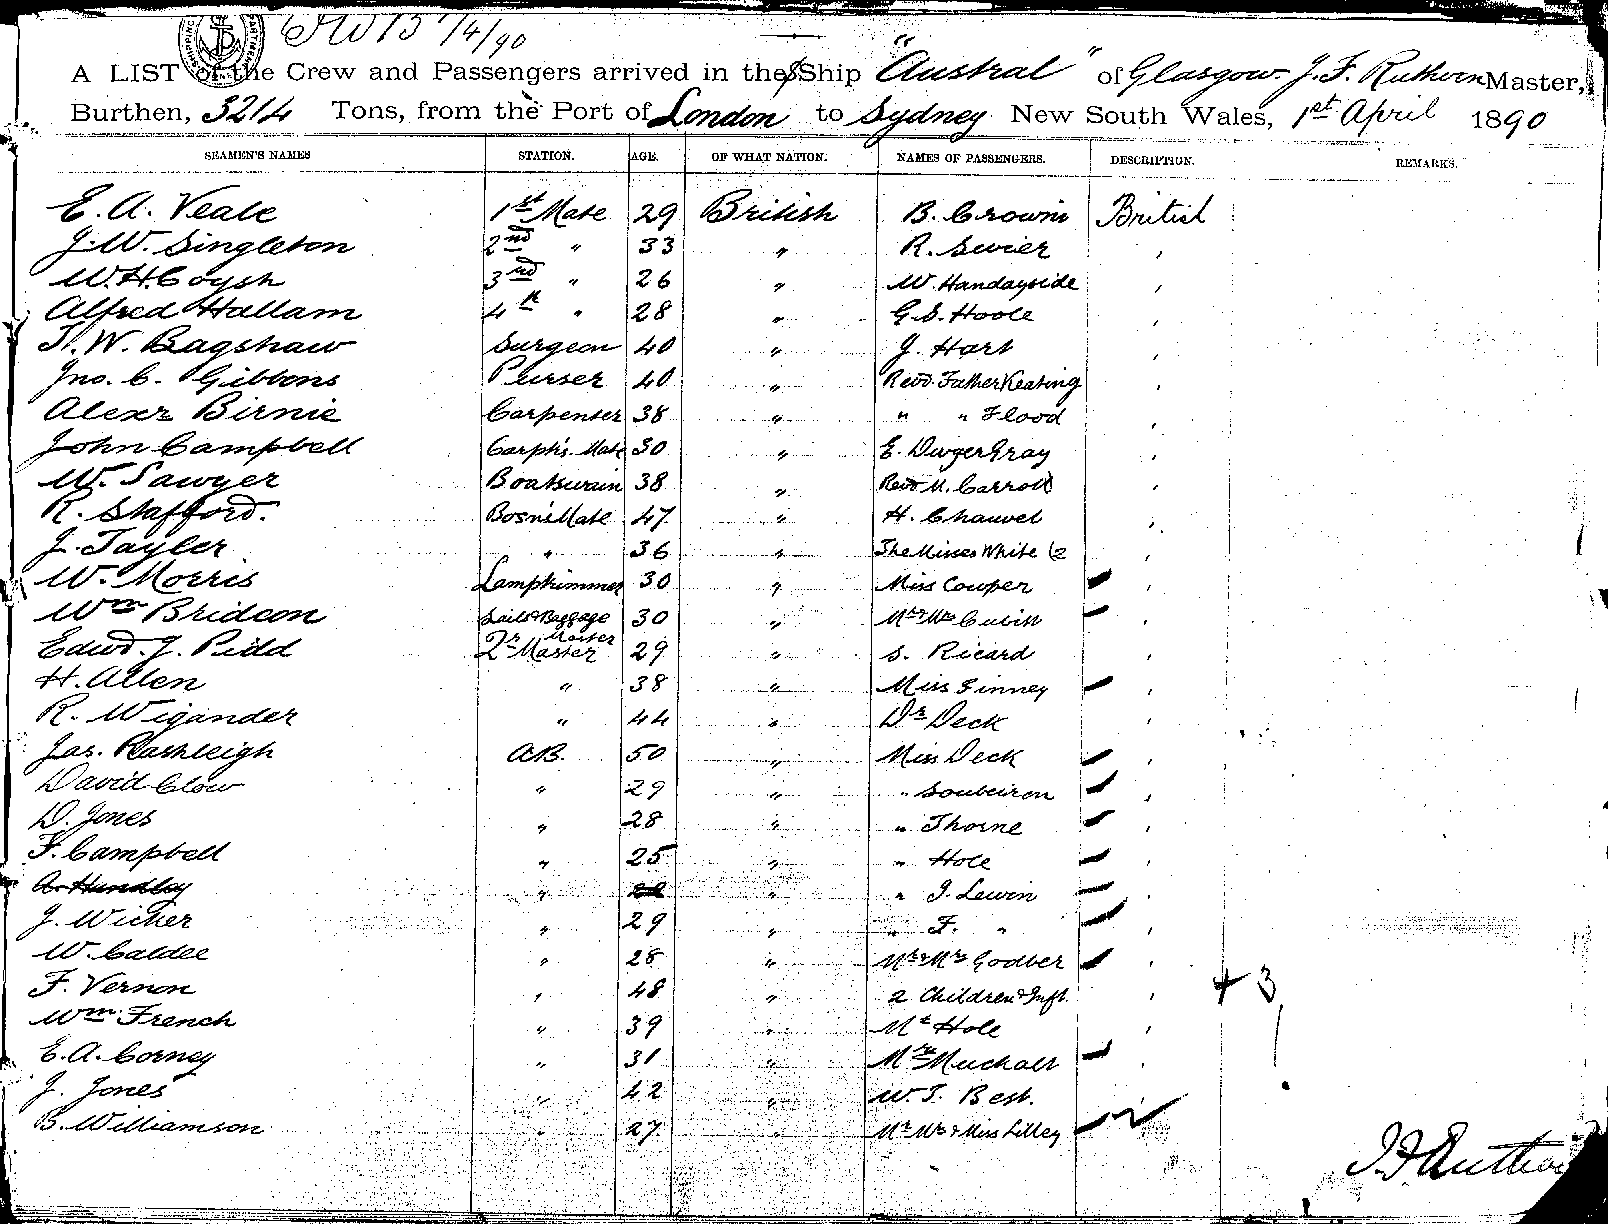 1/4/90
A LIST of the Crew and Passengers arrived in the SShip "Austral" of Glasgow J. F. Ruthven Master,
Burthen, 3214 Tons, from the Port of London to Sydney New South Wales, 1st April 1890
SEAMEN'S NAMES STATION. AGE. OF WHAT NATION. NAMES OF PASSENGERS. DESCRIPTION. REMARKS.
E. A. Veale 1st Mate 29 British B. Crowin British
J. W. Singleton 2nd " 33 " R. Swier "
W. H. Coysh 3rd " 26 " W. Handayside "
Alfred Hallam 4th " 28 " G. S. Hoole "
H. W. Bagshaw Surgeon 40 " J. Hart "
Jno. C. Gibbons Purser 40 " Revd. Father Keating "
Alexr Birnie Carpenter 38 " " " Flood "
John Campbell Carptr's. Mate 30 " E. Dwyer Gray "
W. Sawyer Boatswain 38 " Revd M. Carroll "
R. Stafford. Bosn's Mate 47 " H. Chauvel "
J. Tayler " 36 " The Misses White (2 "
W. Morris Lamptrimmer 30 " Miss Cowper "
Wm Brideon Sails & Baggage Master 30 " Mr & Mrs Cubitt "
Edwd. J. Pidd Qr Master 29 " S. Ricard "
H. Allen " 38 " Miss Finney "
R. Wigander " 44 " Dr Deck "
Jas. Rashleigh A.B. 50 " Miss Deck "
David Clow " 29 " " Soubeiron "
D. Jones " 28 " " Thorne "
F. Campbell " 25 " " Hole "
A. Hundley " " " J. Lewin "
J. Wicher " 29 " " F. " "
W. Caldee " 28 " Mr & Mrs Godber "
F. Vernon " 48 " 2 Children & Inft. " + 3
Wm French " 39 " Mr Hole "
E. A. Corney " 31 " Mrs Muchall "
J. Jones " 42 " W. T. Best.
B. Williamson " 27 " Mr Mrs & Miss Lilley
J. F. Ruthven